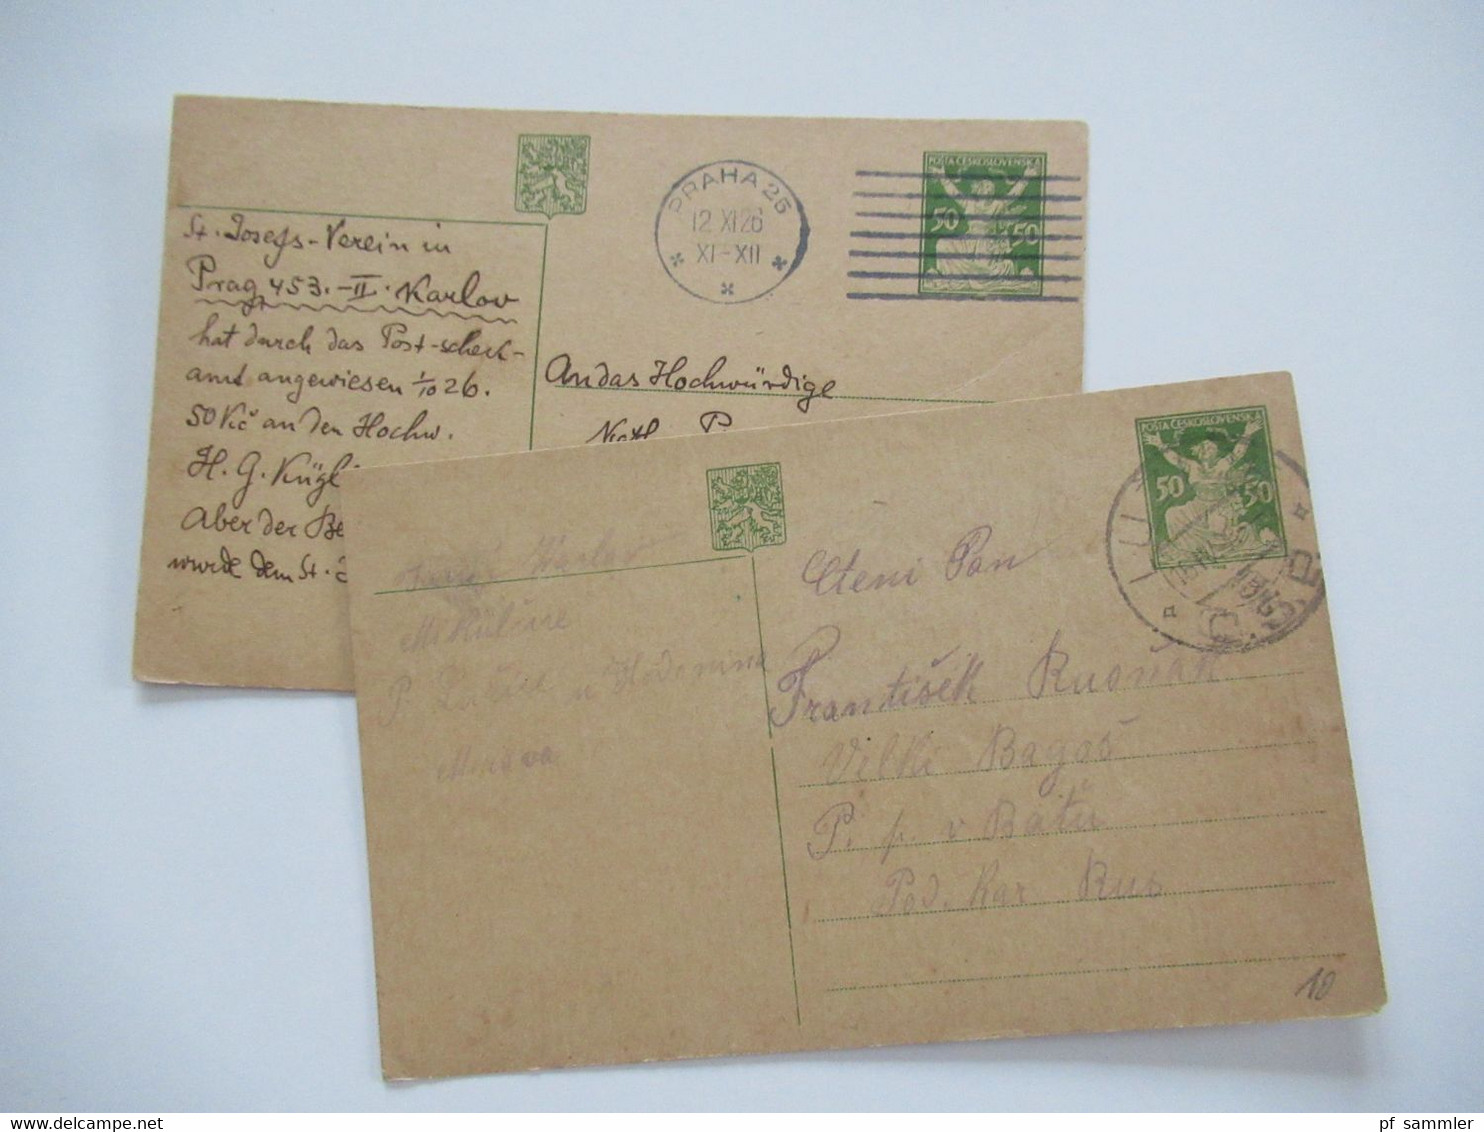 POŠTA ČESKOSLOVENSKÁ
50 50
PRAHA 25
12 XI 26
XI-XII
St. Josefs-Verein in
Prag 453.-II. Karlov
hat durch das Post-scheck-
amt angewiesen 1/10 26.
50 Kč an den Hochw.
H. G. Kügl
Aber der Be
wurde dem St.
An das Hochwürdige
POŠTA ČESKOSLOVENSKÁ
50 50
Č.S.P.
Mikulčice
P. Lužice u Hodonína
Morava
Ctění Pan
František Rusňák
Velki Bagoš
P. p. v Batu
Pod. Kar. Rus
10
delcampe.net
pf_sammler